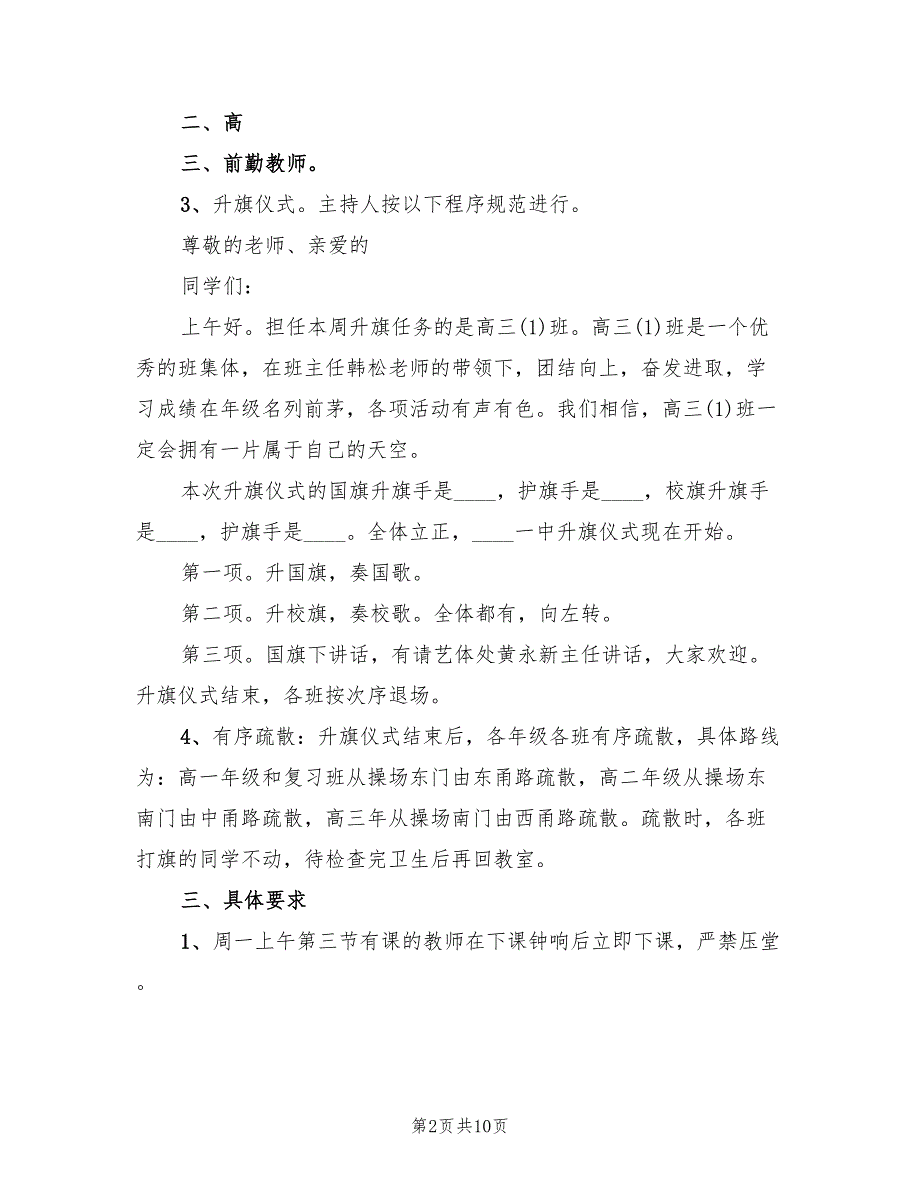 二、高
三、前勤教师。
3、升旗仪式。主持人按以下程序规范进行。
尊敬的老师、亲爱的
同学们：
上午好。担任本周升旗任务的是高三(1)班。高三(1)班是一个优
秀的班集体，在班主任韩松老师的带领下，团结向上，奋发进取，学
习成绩在年级名列前茅，各项活动有声有色。我们相信，高三(1)班一
定会拥有一片属于自己的天空。
本次升旗仪式的国旗升旗手是____，护旗手是____，校旗升旗手
是____，护旗手是____。全体立正，____一中升旗仪式现在开始。
第一项。升国旗，奏国歌。
第二项。升校旗，奏校歌。全体都有，向左转。
第三项。国旗下讲话，有请艺体处黄永新主任讲话，大家欢迎。
升旗仪式结束，各班按次序退场。
4、有序疏散：升旗仪式结束后，各年级各班有序疏散，具体路线
为：高一年级和复习班从操场东门由东甬路疏散，高二年级从操场东
南门由中甬路疏散，高三年从操场南门由西甬路疏散。疏散时，各班
打旗的同学不动，待检查完卫生后再回教室。
三、具体要求
1、周一上午第三节有课的教师在下课钟响后立即下课，严禁压堂
。
第2页共10页